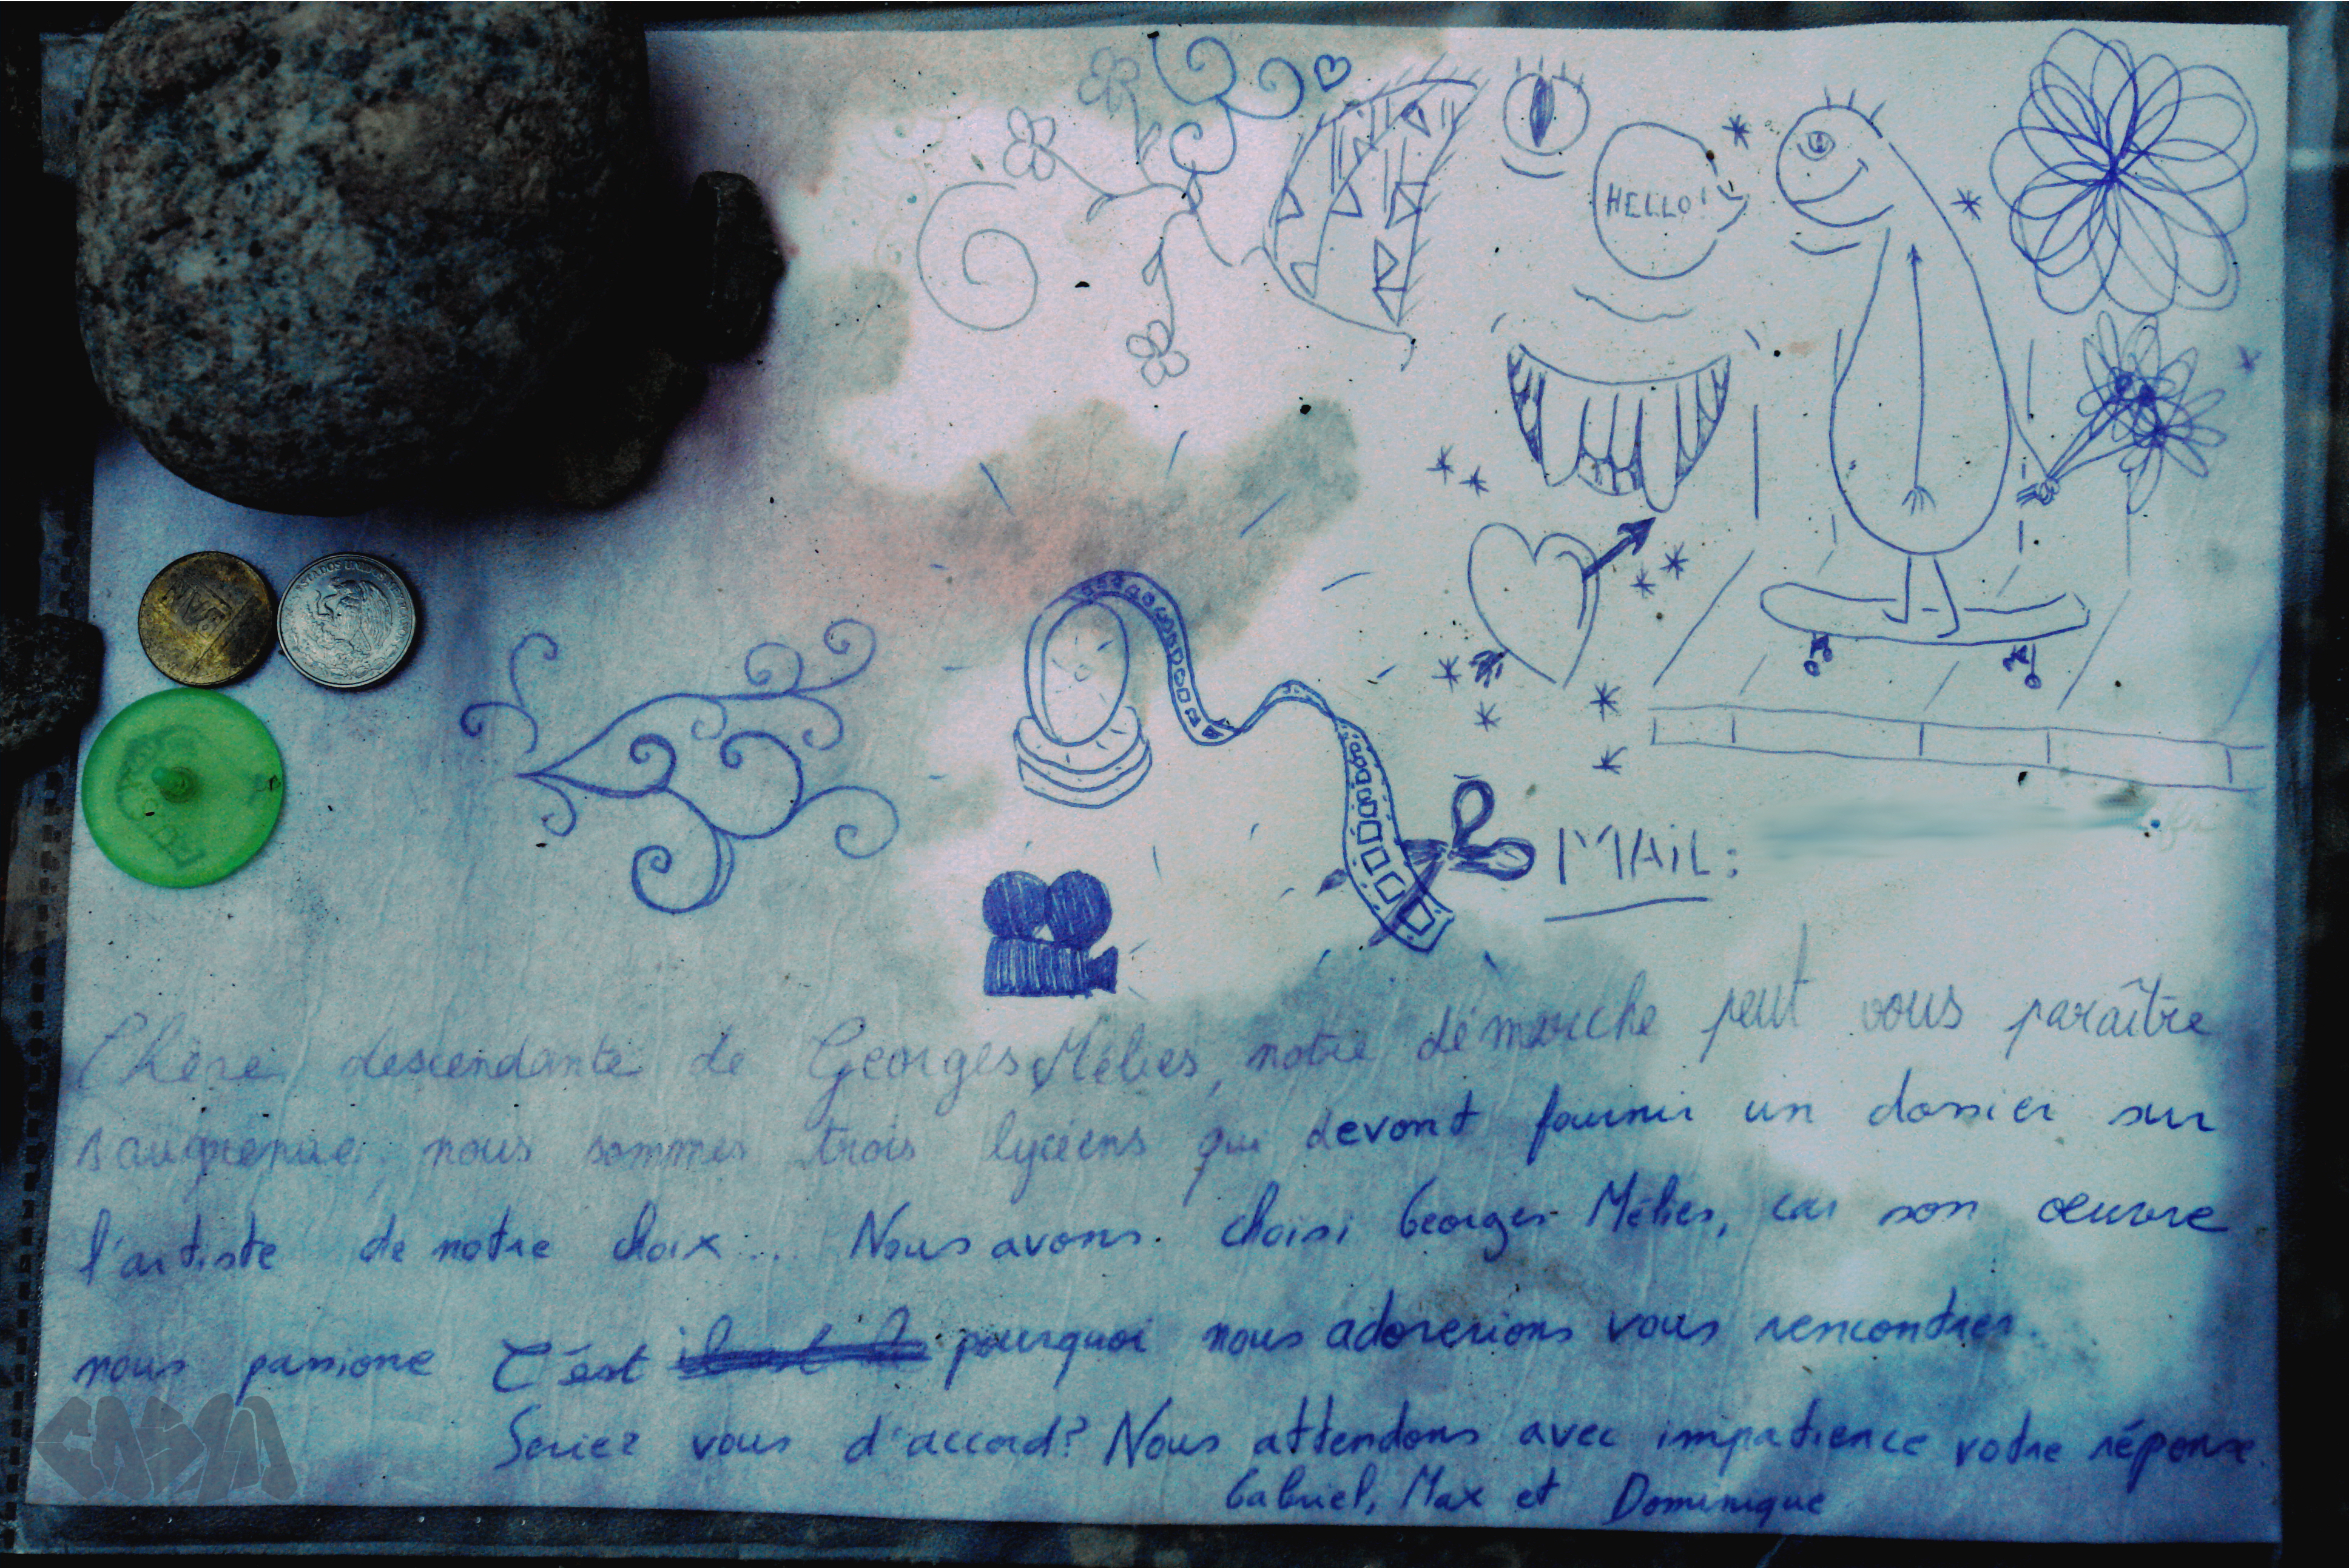 HELLO!
MAiL:
Chère descendante de Georges Méliès, notre démarche peut vous paraître
saugrenue, nous sommes trois lycéens qui devont fournir un dossier sur
l'artiste de notre choix... Nous avons choisi Georges Méliès, car son œuvre
nous passione C'est pourquoi nous adorerions vous rencontrer.
Seriez vous d'accord? Nous attendons avec impatience votre réponse.
Gabriel, Max et Dominique